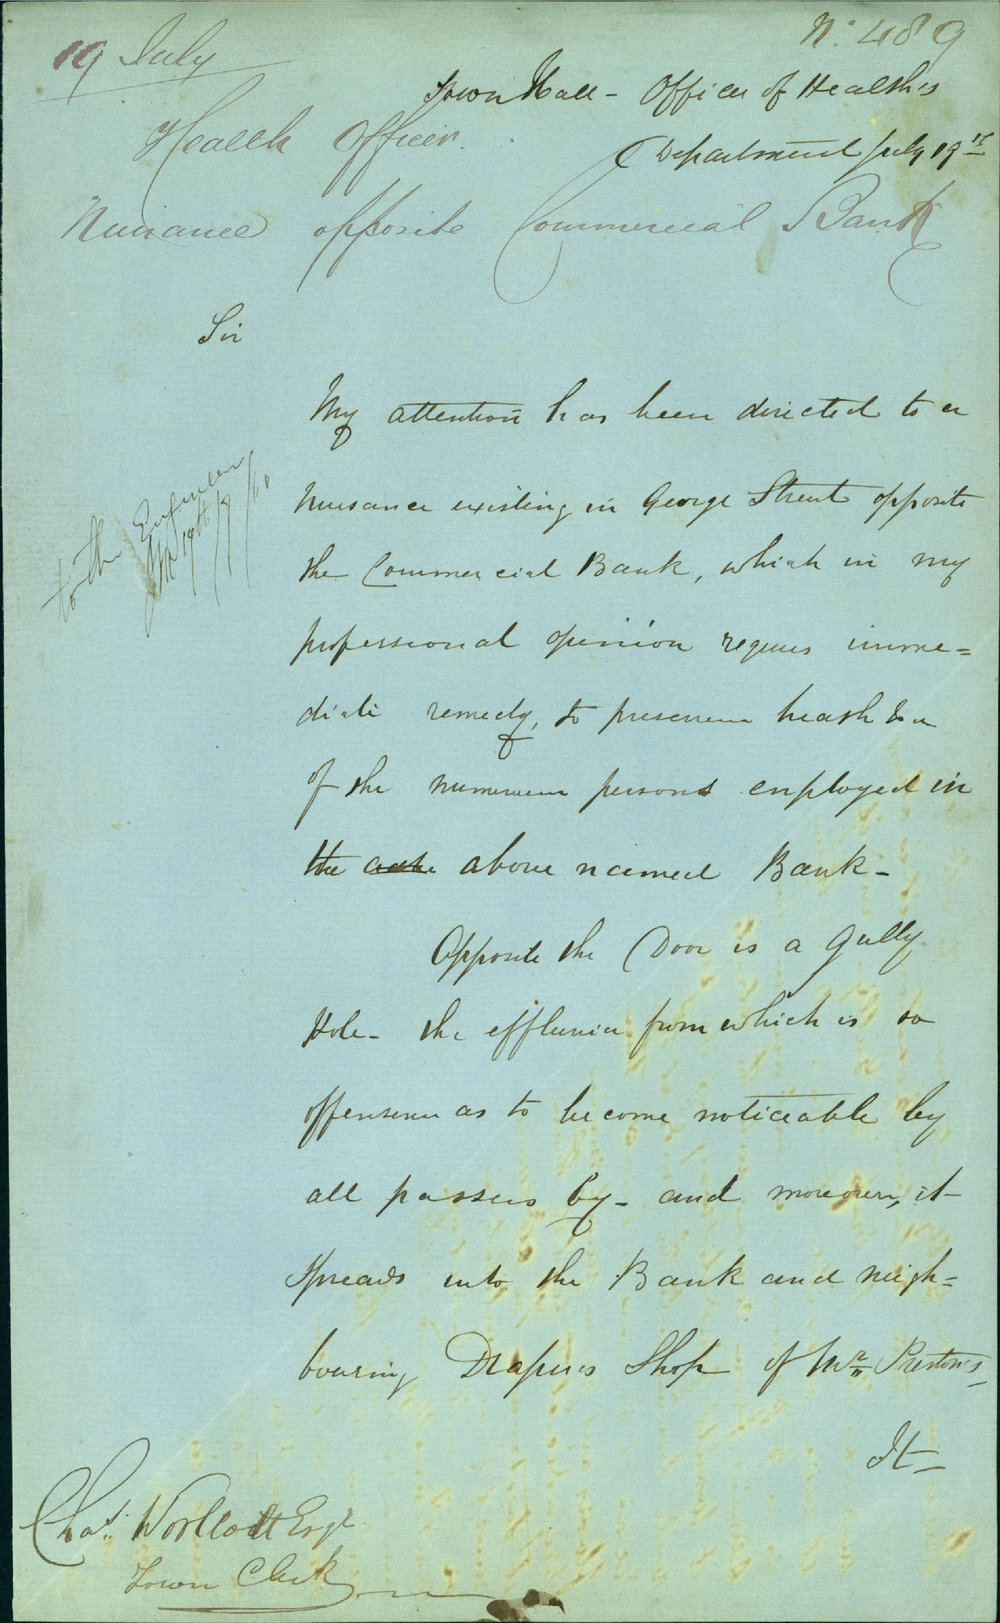 19 July
No. 489
Town Hall - Officer of Health's
Department July 19th
Health Officer
Nuisance opposite Commercial Bank
Sir
My attention has been directed to a
nuisance existing in George Street opposite
to the Engineer
19th /7/60
the Commercial Bank, which in my
professional opinion requires imme=
diate remedy, to preserve health
of the numerous persons employed in
the above named Bank -
Opposite the Door is a Gully
Hole - the effluvia from which is so
offensive as to become noticeable by
all passers by - and moreover, it
spreads into the Bank and neigh=
bouring Drapers Shop of Mr. Preston's -
It -
Chas. Woolcott Esqr
Town Clerk